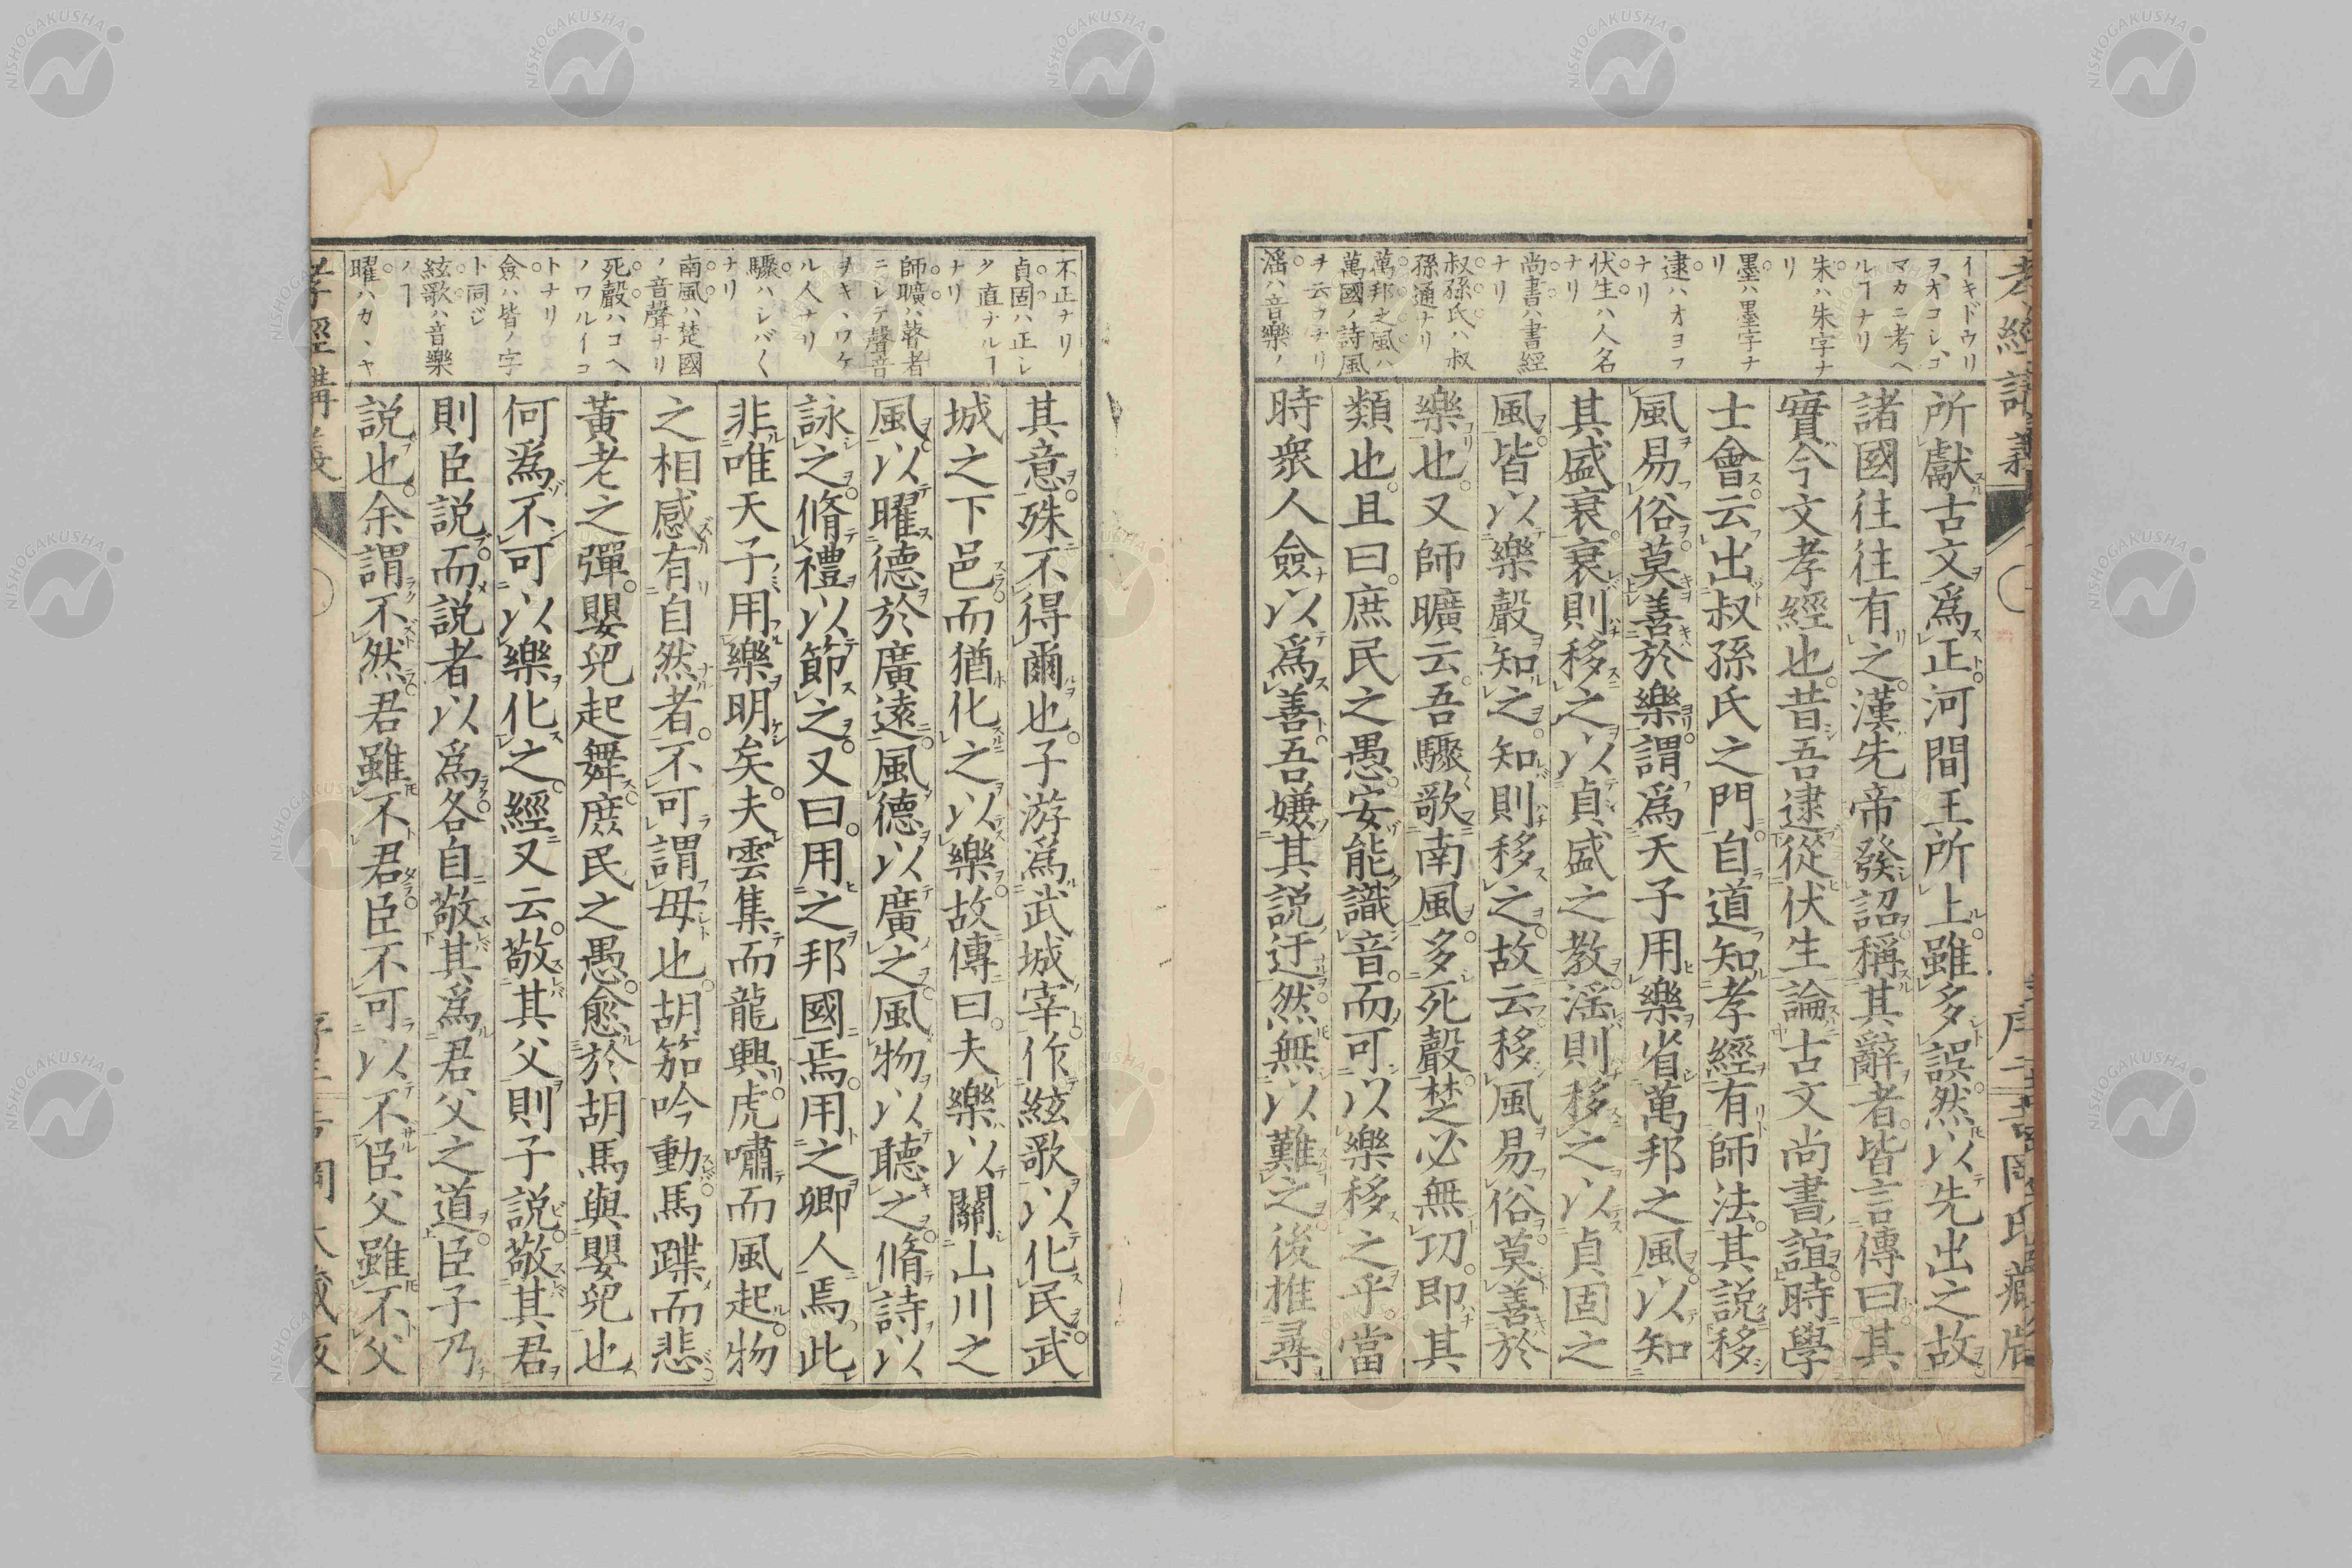 イキドウリ
ヲ、オコレ、コ
マカニ考ヘ
ルヿナリ
朱ハ朱字ナ
リ
墨ハ墨字ナ
リ
逮ハオヨフ
ナリ
伏生ハ人名
ナリ
尚書ハ書經
ナリ
叔孫氏ハ叔
孫通ナリ
萬邦之風ハ
萬國ノ詩風
ヲ云フナリ
滛ハ音樂ノ
所獻古文爲正河間王所上雖多誤然以先出之故
諸國往往有之漢先帝發詔稱其辭者皆言傳曰其
實今文孝經也昔吾逮從伏生論古文尚書誼時學
士會云出叔孫氏之門自道知孝經有師法其説移
風易俗莫善於樂謂爲天子用樂省萬邦之風以知
其盛衰衰則移之以貞盛之教滛則移之以貞固之
風皆以樂聲知之知則移之故云移風易俗莫善於
樂也又師曠云吾驟歌南風多死聲楚必無功即其
類也且曰庶民之愚安能識音而可以樂移之乎當
時衆人僉以爲善吾嫌其説迂然無以難之後推尋
不正ナリ
貞固ハ正シ
ク直ナルヿ
ナリ
師曠ハ瞽者
ニシテ聲音
ヲキ丶ワケ
ル人ナリ
驟ハシバ〱
ナリ
南風ハ楚國
ノ音聲ナリ
死聲ハコヘ
ノワルイコ
トナリ
僉ハ皆ノ字
ト同ジ
絃歌ハ音樂
ノヿ
曜ハカ丶ヤ
其意殊不得爾也子游爲武城宰作絃歌以化民武
城之下邑而猶化之以樂故傳曰夫樂以關山川之
風以曜德於廣遠風德以廣之風物以聽之脩詩以
詠之脩禮以節之又曰用之邦國焉用之鄉人焉此
非唯天子用樂明矣夫雲集而龍興虎嘯而風起物
之相感有自然者不可謂毋也胡笳吟動馬蹀而悲
黃老之彈嬰兒起舞庶民之愚愈於胡馬與嬰兒也
何爲不可以樂化之經又云敬其父則子説敬其君
則臣説而説者以爲各自敬其爲君父之道臣子乃
説也余謂不然君雖不君臣不可以不臣父雖不父
NISHOGAKUSHA